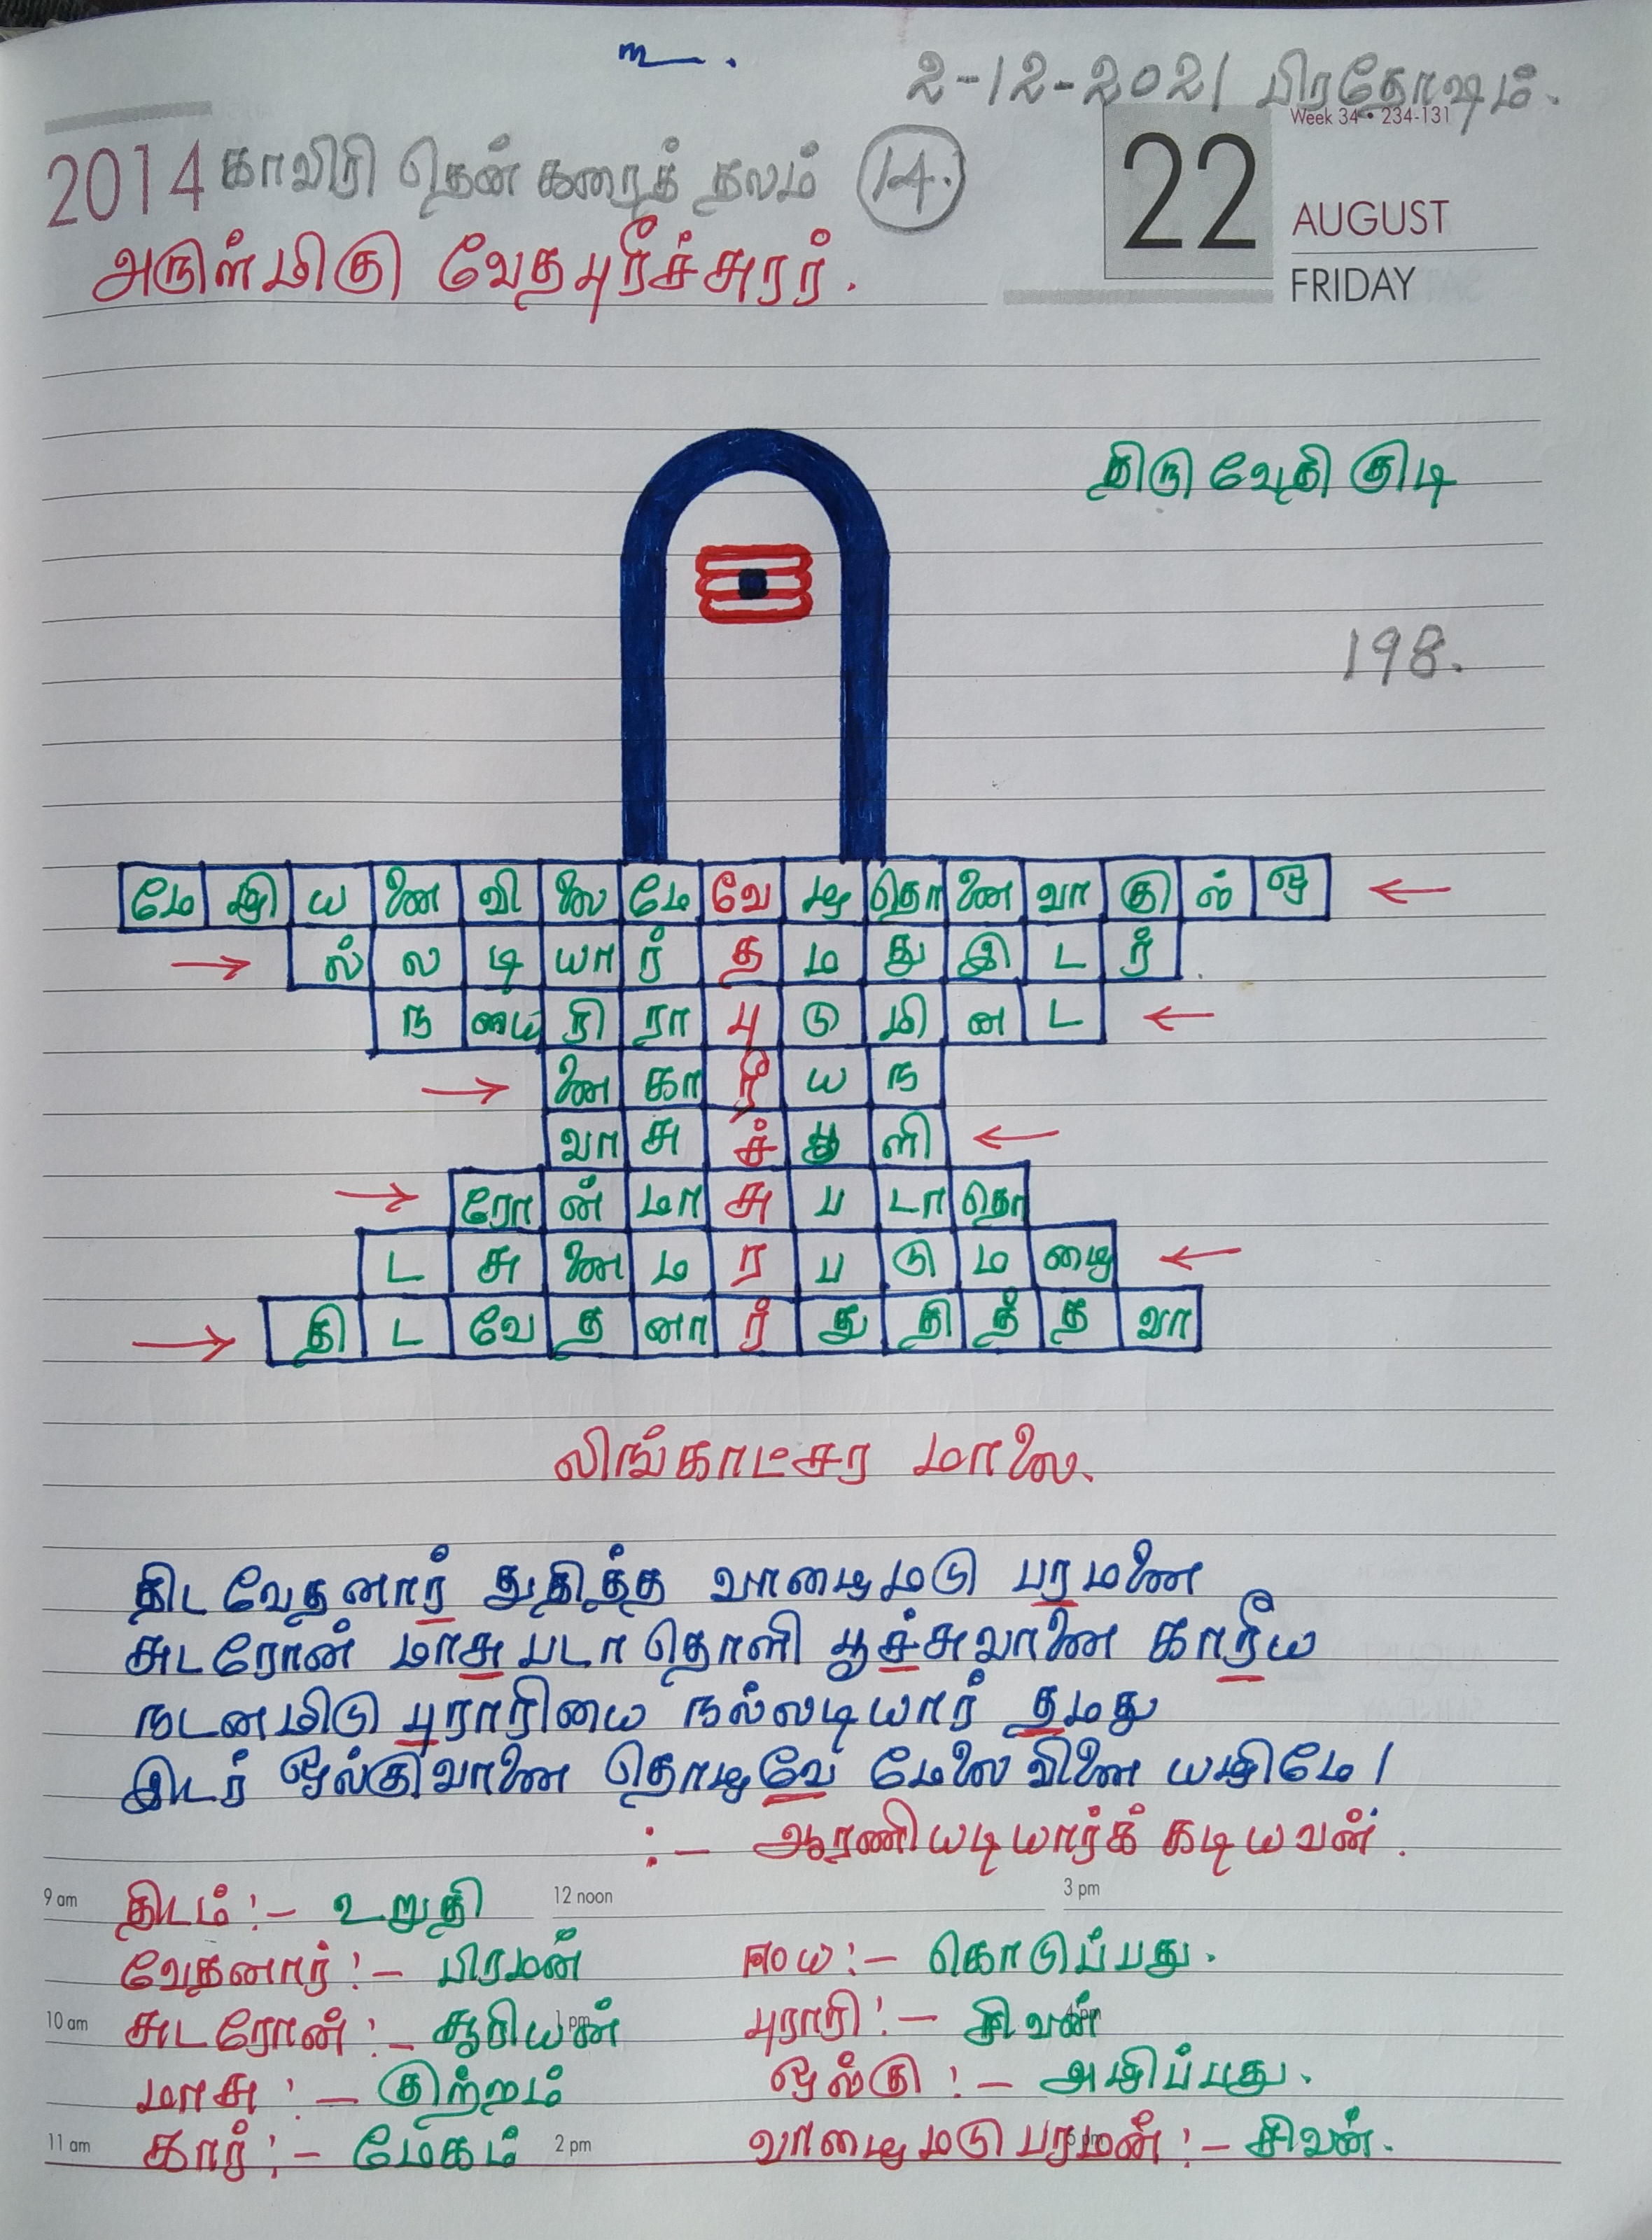 2-12-2021 பிரதோஷம்.
Week 34 • 234-131
2014 காவிரி தென் கரைத் தலம் 14.
22
AUGUST
FRIDAY
அருள்மிகு வேதபுரீச்சுரர்.
திரு வேதி குடி
198.
மே ழி ய னை வி லை மே வே ழ தொ னை வா கு ல் ஒ ←
→ ல் ல டி யா ர் த ம து இ ட ர்
ந யை ரி ரா பு டு மி ன ட ←
→ னை கா ரீ ய ந
வா சு ச் பூ ளி ←
→ ரோ ன் மா சு ப டா தொ
ட சு னை ம ர ப டு ம ழை ←
→ தி ட வே த னா ர் து தி த் த வா
லிங்காட்சர மாலை.
திட வேதனார் துதித்த வாழைமடு பரமனை
சுடரோன் மாசு படா தொளி பூச்சுவானை காரீய
நடனமிடு புராரியை நல்லடியார் தமது
இடர் ஒல்குவானை தொழவே மேலை வினை யழிமே /
:- ஆரணியடியார்க் கடியவன்.
9 am 12 noon 3 pm
திடம் :- உறுதி
வேதனார் :- பிரமன் ஈய :- கொடுப்பது.
10 am 1 pm 4 pm
சுடரோன் :- சூரியன் புராரி :- சிவன்
மாசு :- குற்றம் ஒல்கு :- அழிப்பது.
11 am 2 pm 5 pm
கார் :- மேகம் வாழைமடு பரமன் :- சிவன்.